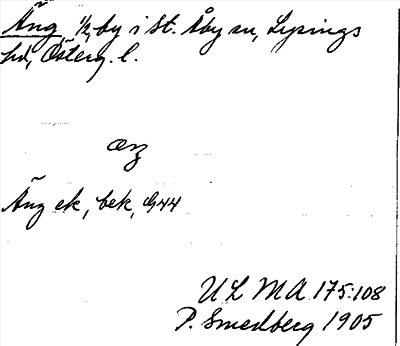 Äng, ½, by i St. Åby sn, Lysings
hd, Österg. l.
æŋ
Äng ek, bek, G44
ULMA 175:108
P. Smedberg 1905